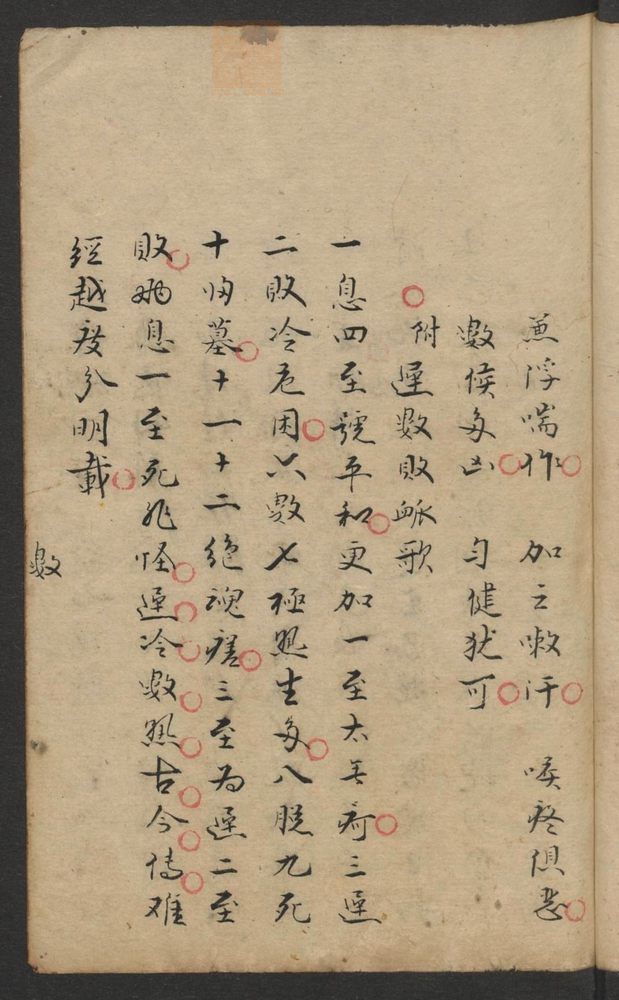 兼浮喘作 加之嗽汗 喉疼俱惡
數候多凶 匀健犹可
附遲數敗脈歌
一息四至號平和更加一至太无疴三遲
二敗冷危困六數七極熱生多八脱九死
十归墓十一十二絶魂瘥三至为遲二至
敗两息一至死非怪遲冷數熱古今传难
經越度分明載
數